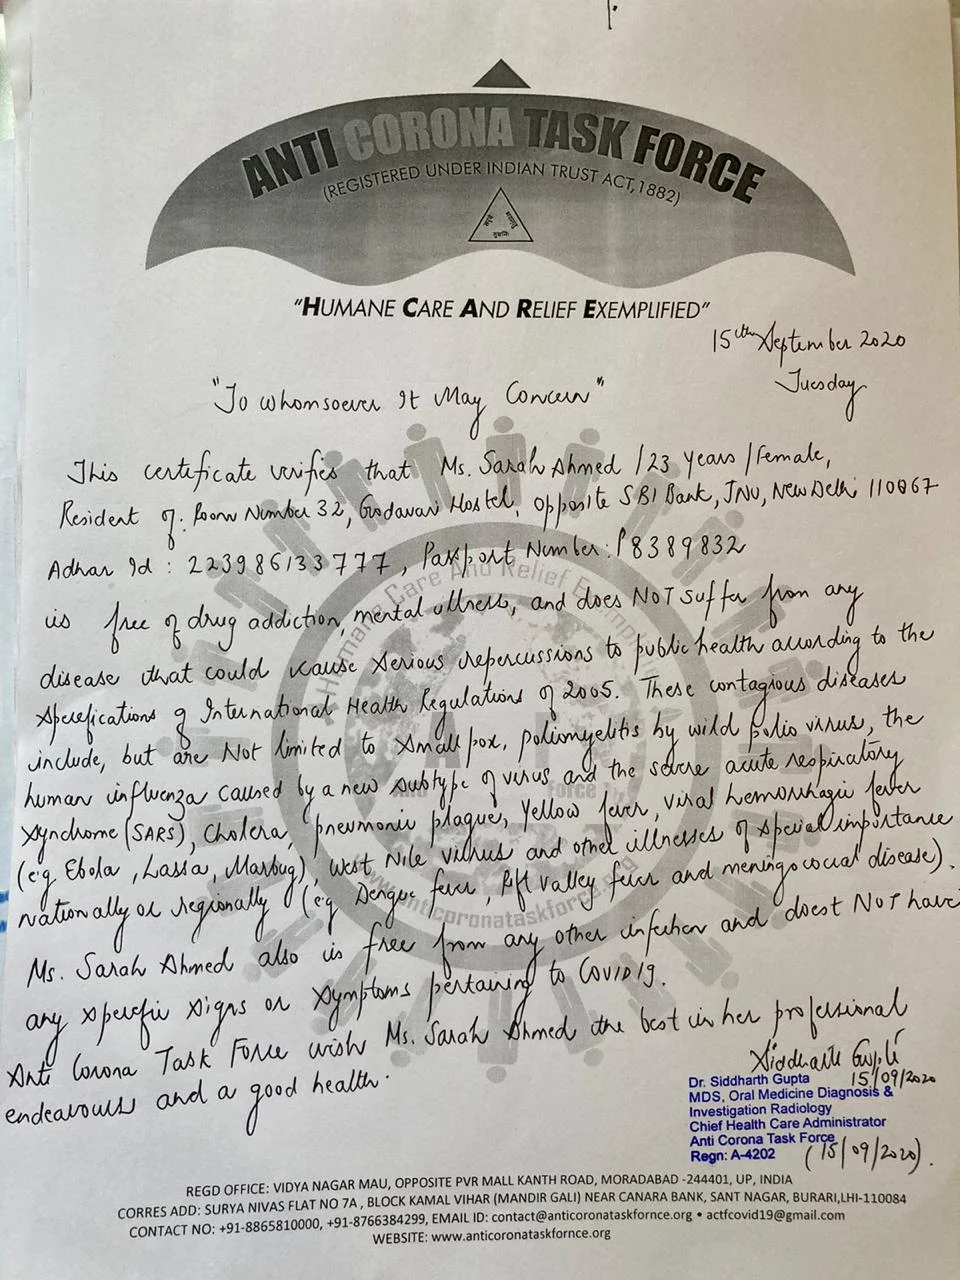 ANTI CORONA TASK FORCE
(REGISTERED UNDER INDIAN TRUST ACT,1882)
"HUMANE CARE AND RELIEF EXEMPLIFIED"
15th September 2020
Tuesday
"To whomsoever It May Concern"
This certificate verifies that Ms. Sarah Ahmed /23 years /Female,
Resident of: Room Number 32, Godavari Hostel, opposite SBI Bank, JNU, New Delhi 110067
Adhar Id : 223986133777, Passport Number: P8389832
is free of drug addiction, mental illness, and does NOT suffer from any
disease that could cause serious repercussions to public health according to the
specifications of International Health Regulations of 2005. These contagious diseases
include, but are Not limited to Small pox, poliomyelitis by wild polio virus, the
human influenza caused by a new subtype of virus and the severe acute respiratory
syndrome (SARS), Cholera, pneumonic plague, Yellow fever, viral hemorrhagic fever
(eg Ebola, Lassa, Marbug), West Nile virus and other illnesses of special importance
nationally or regionally (eg Dengue fever, Rift valley fever and meningococcal disease).
Ms. Sarah Ahmed also is free from any other infection and doest NOT have
any specific signs or symptoms pertaining to Covid19.
Anti Corona Task Force wish Ms. Sarah Ahmed the best in her professional
endeavours and a good health.
Siddharth Gupta
15/09/2020
Dr. Siddharth Gupta
MDS, Oral Medicine Diagnosis &
Investigation Radiology
Chief Health Care Administrator
Anti Corona Task Force
Regn: A-4202 (15/09/2020).
REGD OFFICE: VIDYA NAGAR MAU, OPPOSITE PVR MALL KANTH ROAD, MORADABAD -244401, UP, INDIA
CORRES ADD: SURYA NIVAS FLAT NO 7A , BLOCK KAMAL VIHAR (MANDIR GALI) NEAR CANARA BANK, SANT NAGAR, BURARI,LHI-110084
CONTACT NO: +91-8865810000, +91-8766384299, EMAIL ID: contact@anticoronataskfornce.org • actfcovid19@gmail.com
WEBSITE: www.anticoronataskfornce.org